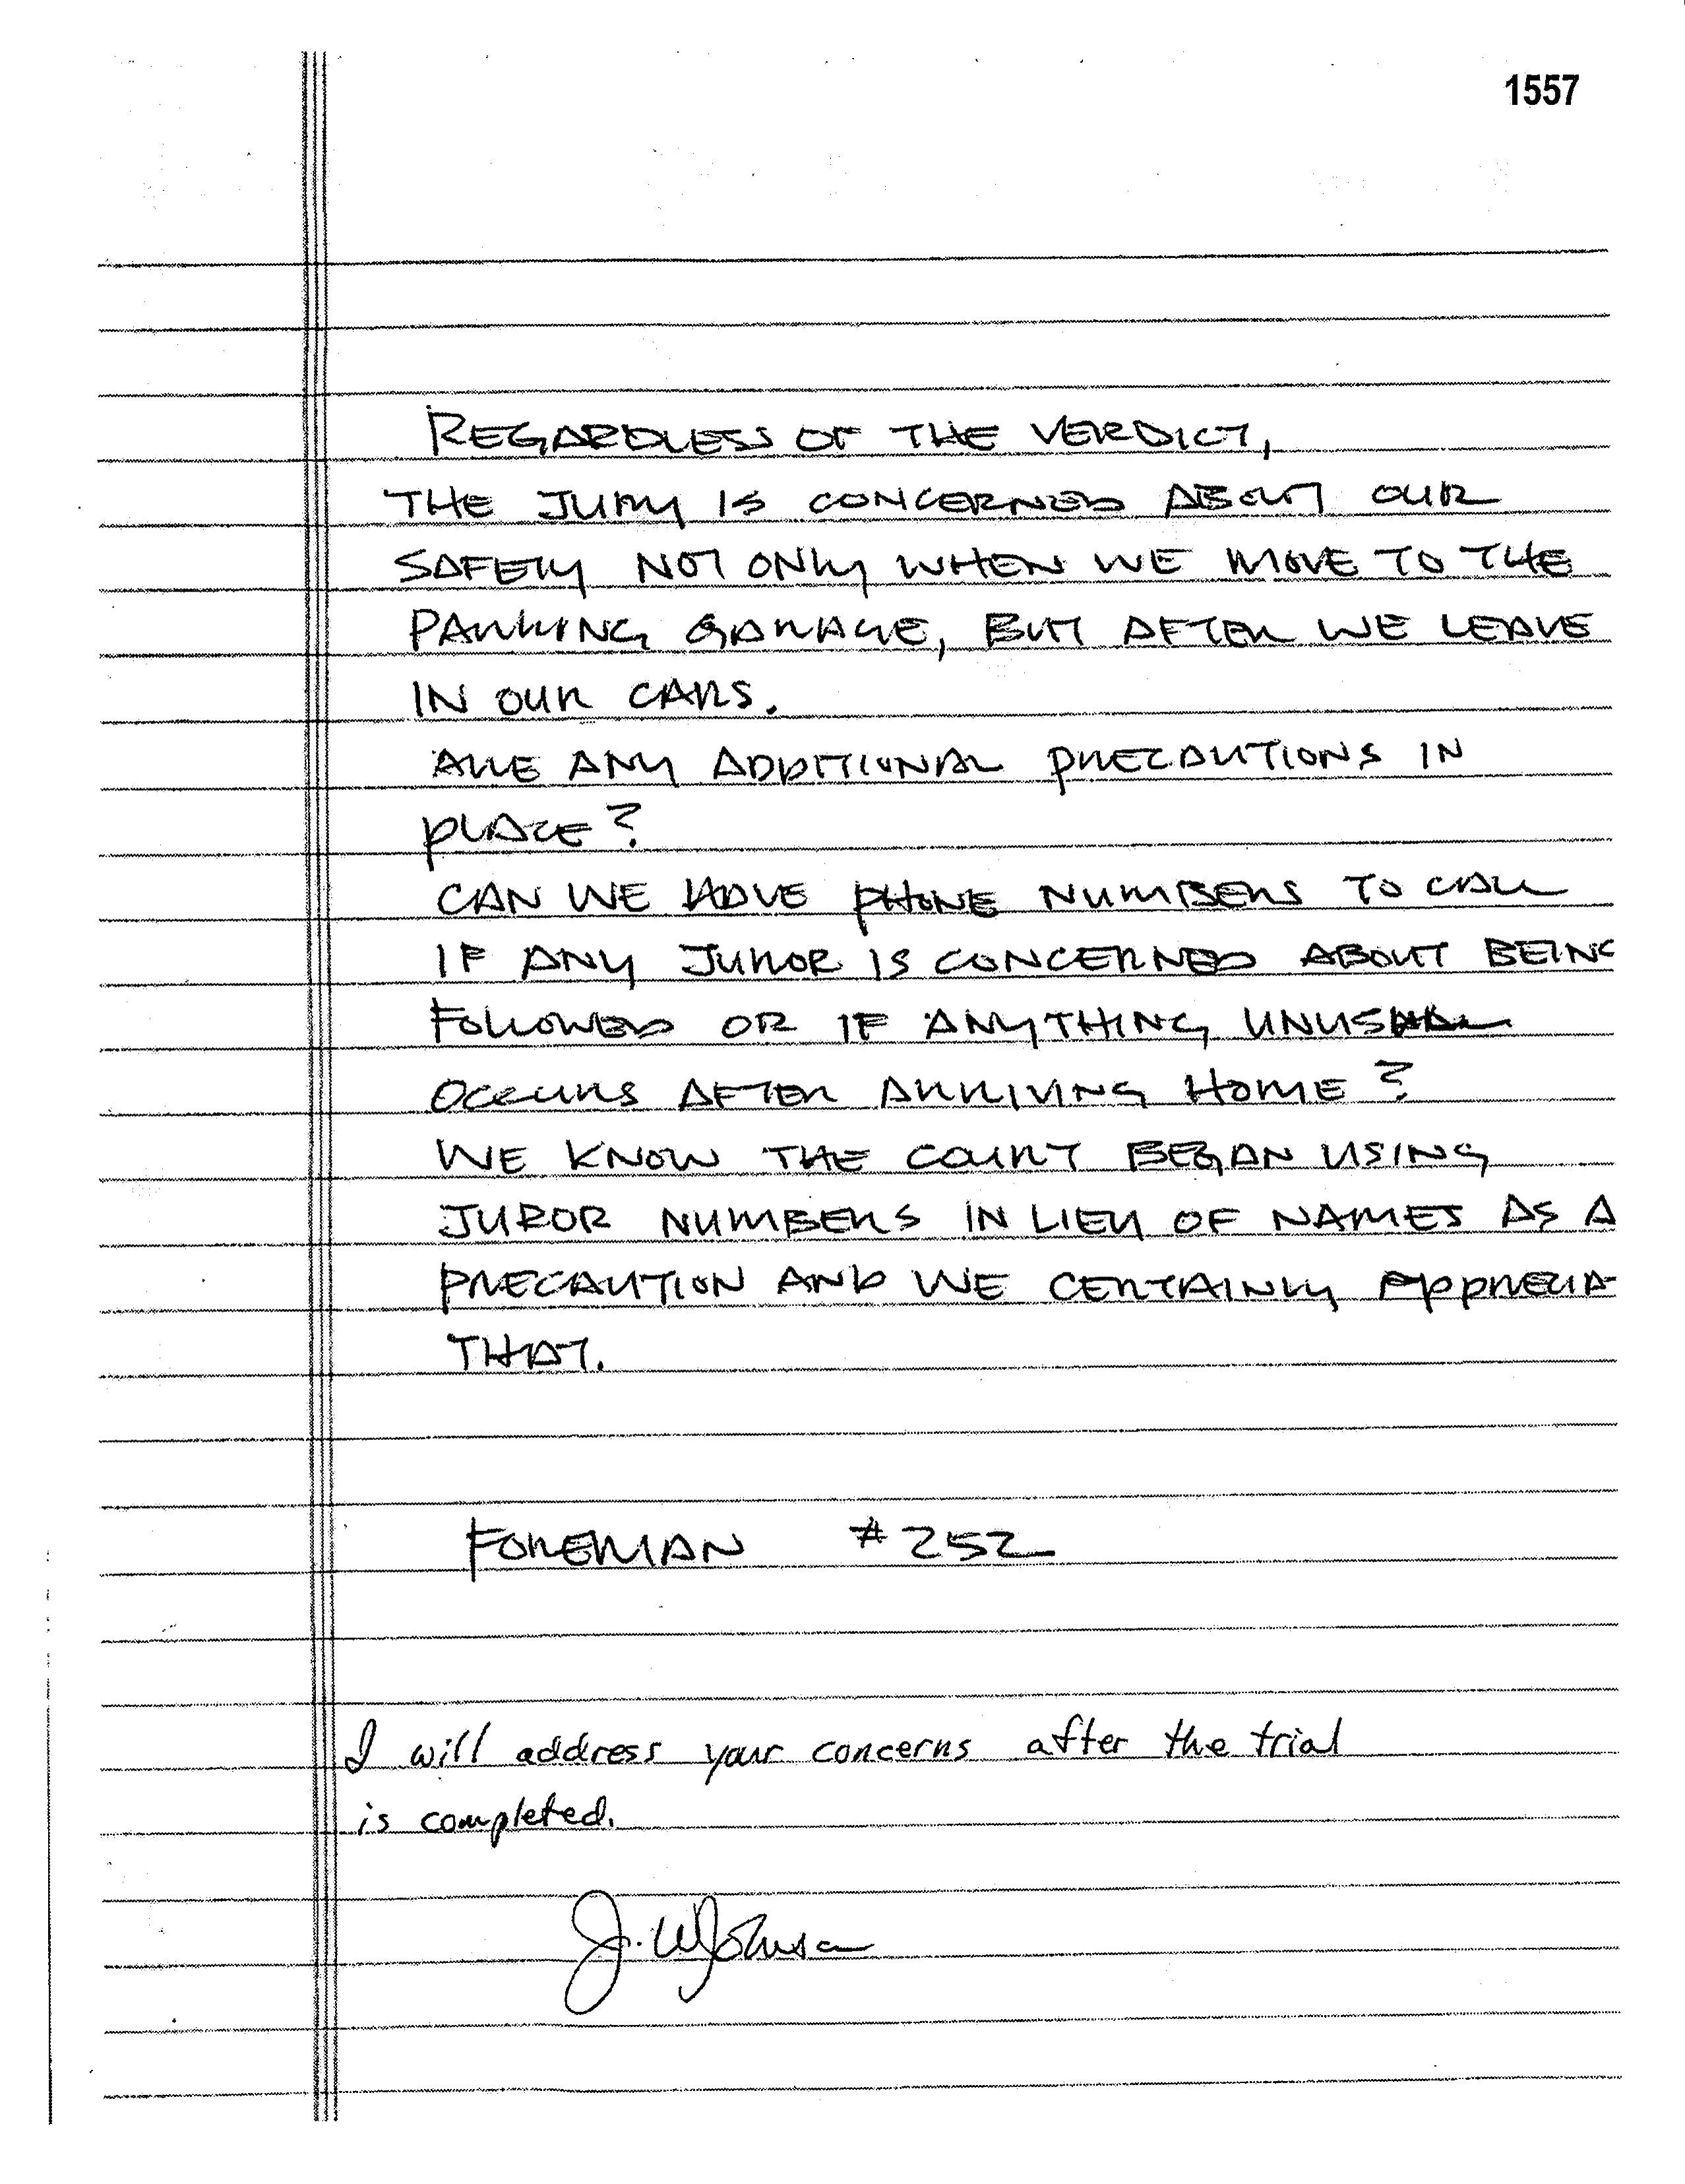 1557
REGARDLESS OF THE VERDICT,
THE JURY IS CONCERNED ABOUT OUR
SAFETY NOT ONLY WHEN WE MOVE TO THE
PARKING GARAGE, BUT AFTER WE LEAVE
IN OUR CARS.
ARE ANY ADDITIONAL PRECAUTIONS IN
PLACE?
CAN WE HAVE PHONE NUMBERS TO CALL
IF ANY JUROR IS CONCERNED ABOUT BEING
FOLLOWED OR IF ANYTHING UNUSUAL
OCCURS AFTER ARRIVING HOME?
WE KNOW THE COURT BEGAN USING
JUROR NUMBERS IN LIEU OF NAMES AS A
PRECAUTION AND WE CERTAINLY APPRECIA
THAT.
FOREMAN #252
I will address your concerns after the trial
is completed.
J. W Johnson